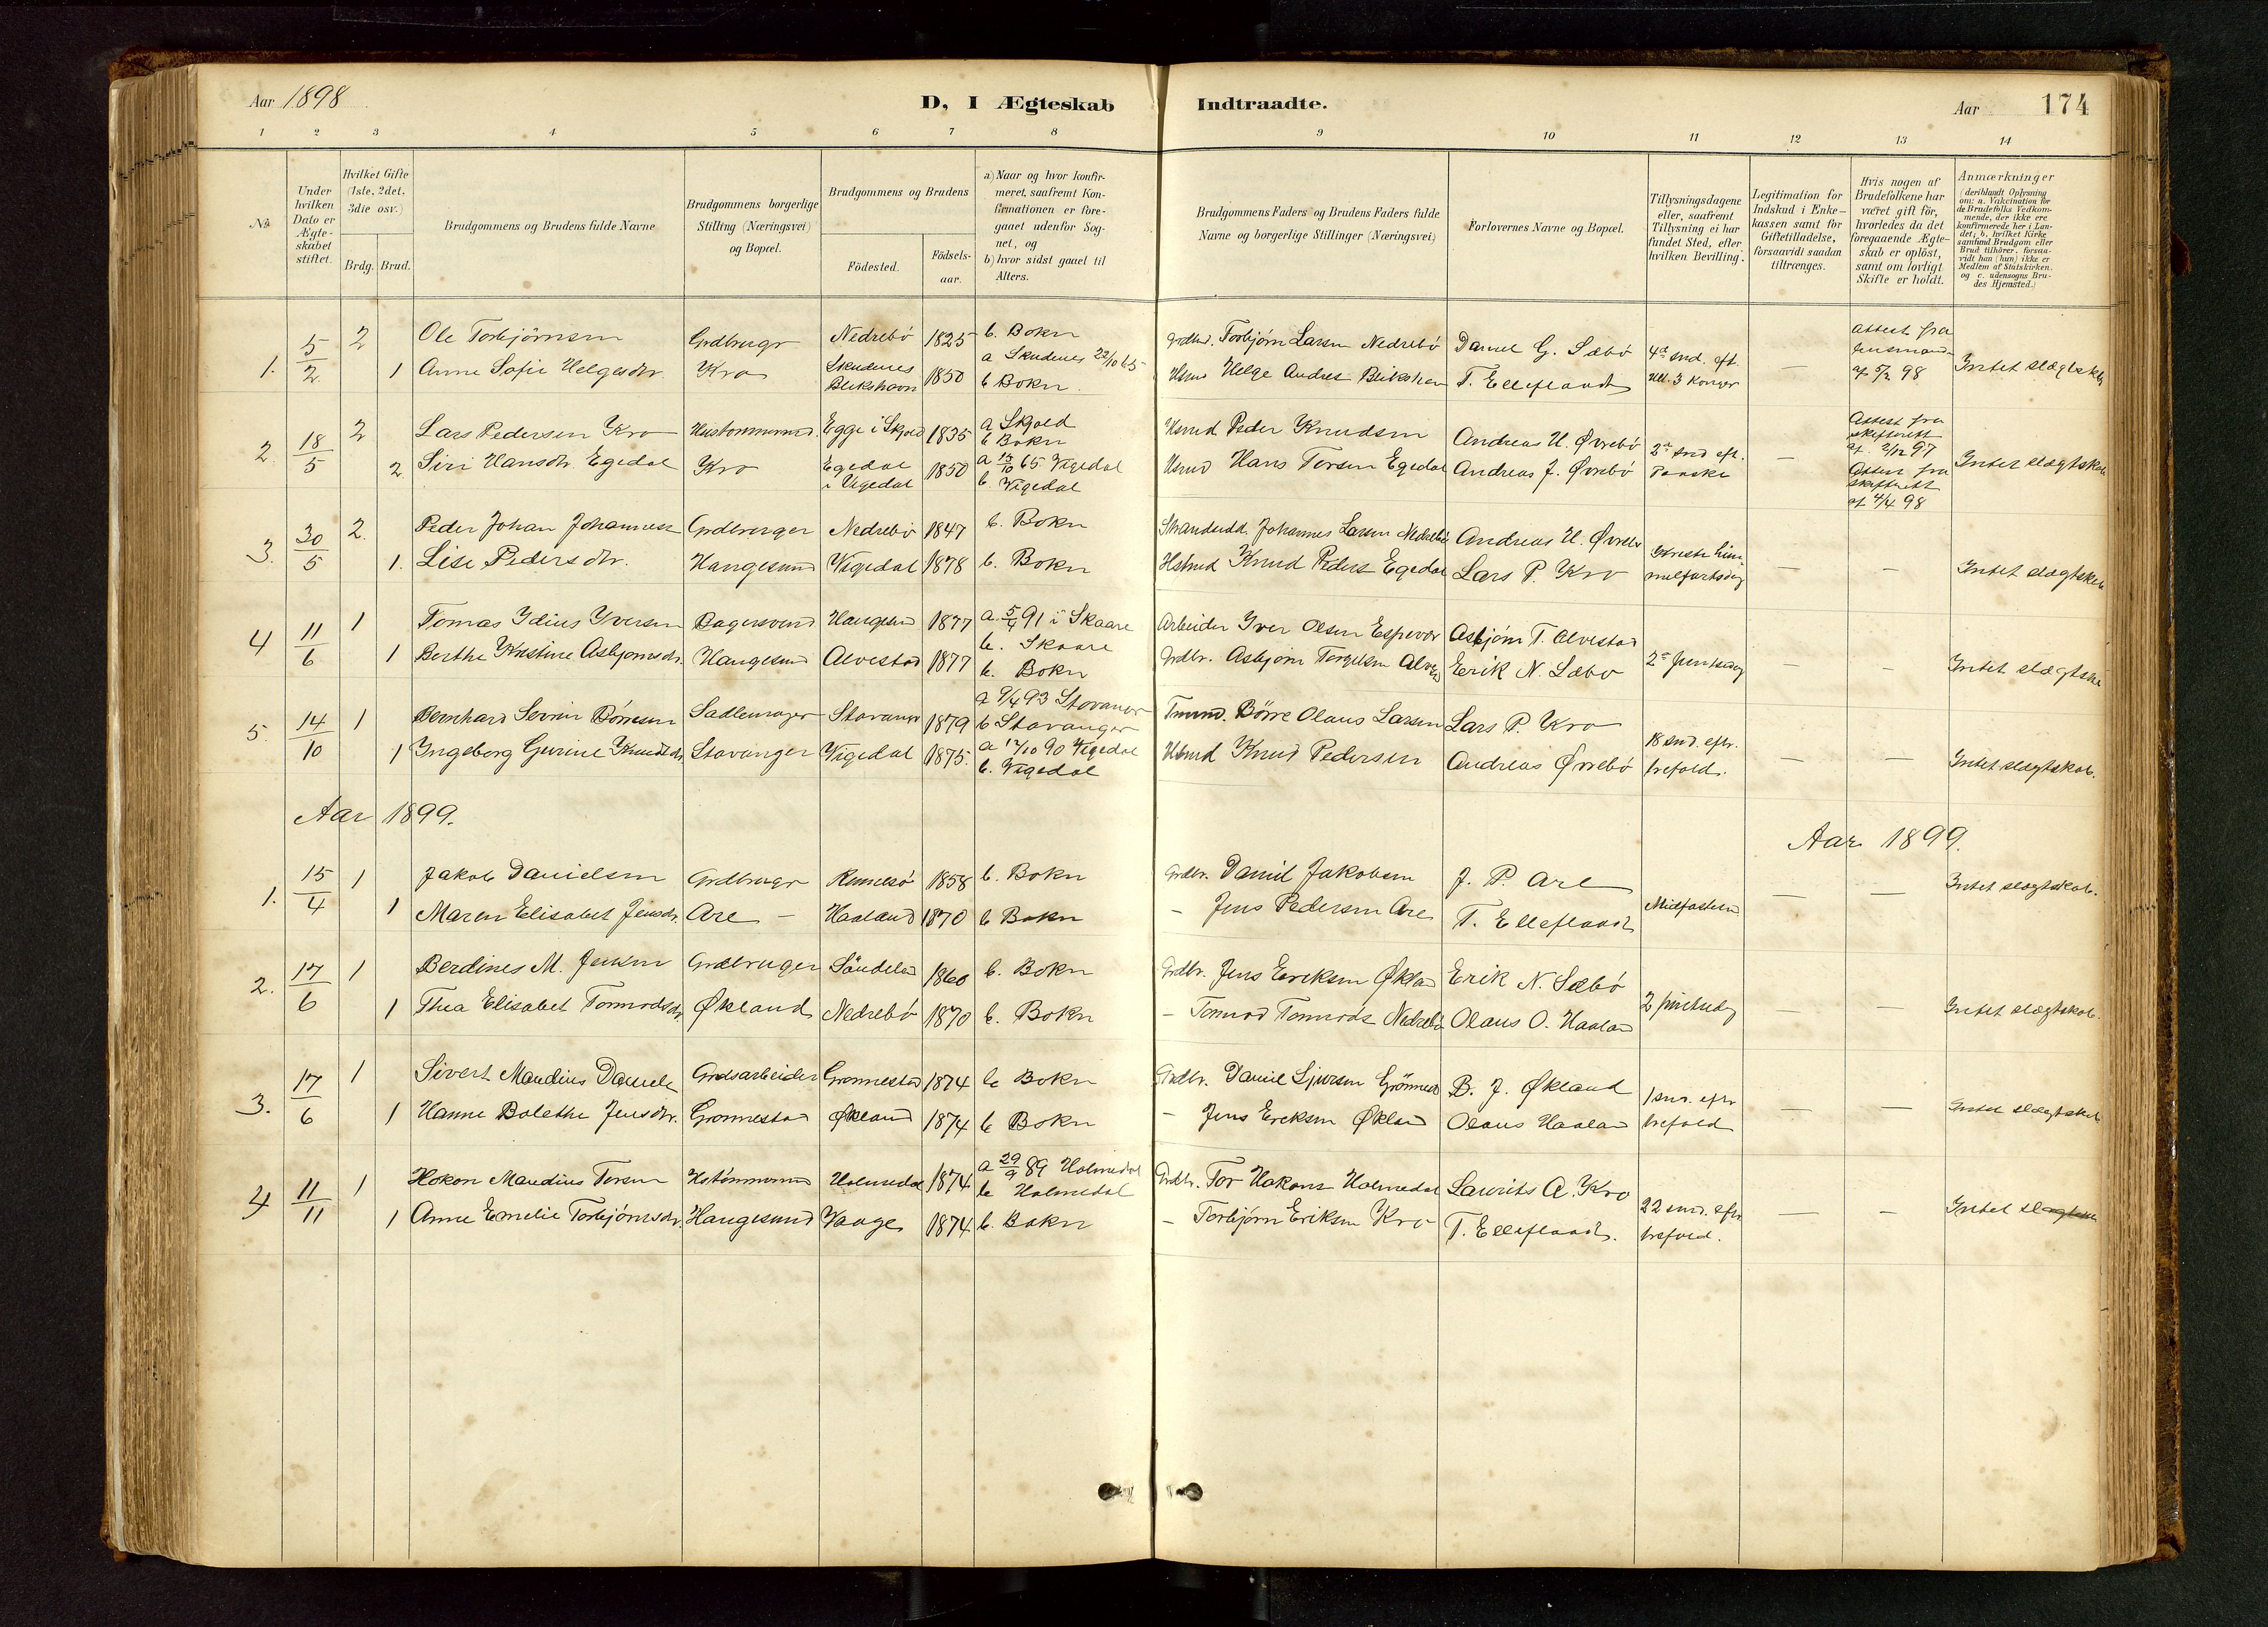 Aar 1898
D, I Ægteskab Indtraadte.
Aar
174
1 2 3 4 5 6 7 8 9 10 11 12 13 14
No.
Under hvilken Dato er Ægteskabet stiftet.
Hvilket Gifte (1ste, 2det, 3die osv.)
Brdg. Brud.
Brudgommens og Brudens fulde Navne
Brudgommens borgerlige Stilling (Næringsvei) og Bopæl.
Brudgommens og Brudens
Födested.
Födselsaar.
a) Naar og hvor konfirmeret, saafremt Konfirmationen er foregaaet udenfor Sognet, og
b) hvor sidst gaaet til Alters.
Brudgommens Faders og Brudens Faders fulde Navne og borgerlige Stillinger (Næringsvei)
Forlovernes Navne og Bopæl.
Tillysningsdagene eller, saafremt Tillysning ei har fundet Sted, efter hvilken Bevilling.
Legitimation for Indskud i Enkekassen samt for Giftetilladelse, forsaavidt saadan tiltrænges.
Hvis nogen af Brudefolkene har været gift för, hvorledes da det foregaaende Ægteskab er oplöst, samt om lovligt Skifte er holdt.
Anmærkninger (deriblandt Oplysning om: a. Vakcination for de Brudefolks Vedkommende, der ikke ere konfirmerede her i Landet; b. hvilket Kirkesamfund Brudgom eller Brud tilhörer, forsaavidt han (hun) ikke er Medlem af Statskirken, og c. udensogns Brudes Hjemsted.)
1. 5/2 2 Ole Torbjörnsen Grdbruger Nedrebö 1825 b. Bokn Grdbr. Torbjörn Larsen Nedrebö Daniel G. Sæbö 4de snd. eft. Attest fra
1 Anne Sofie Helgesdtr. Kro Skudenes 1850 a Skudenes 22/10 65 b Bokn Helge Andres T. Elleflaadt Hll. 3 Konger — af 5/2 98 Intet slægtskb
2. 18/5 2 Lars Pedersen Kro Hustömmermd. Egge i Skjold 1835 a Skjold b Bokn Husmd Peder Knudsen Andreas H. Øvrebö 2den snd eft. Attest fra skifterett af 2/12 97
2. Siri Hansdtr. Egedal Kro Egedal i Vigedal 1850 a 15/10 65 Vigedal b. Vigedal Husmd Hans Torsen Egedal Andreas J. Øvrebö Paaske — Attest fra skifterett af 4/4 98 Intet slægtskab
3. 30/5 2. Peder Johan Johanness Grdbruger Nedrebö 1847 b. Bokn Strandsidd. Johannes Larsen Nedrebö Andreas H. Øvrebö Kristi him-
1. Lise Pedersdtr. Haugesund Vigedal 1878 b. Bokn Knud Peders Egedal Lars P. Kro melfartsdag — — Intet slægtskab
4 11/6 1 Tomas Idius Iversen Bagersvend Haugesund 1877 a. 5/4 91 i Skaare b. Skaare Arbeider Iver Olsen Espevær Asbjörn T. Alvestad
1 Berthe Kristine Asbjørnsdtr. Haugesund Alvestad 1877 b. Bokn Grdbr. Asbjørn Tergelsen Erik N. Sæbö 2den pintsedag — — Intet slægtska
5. 14/10 1 Bernhard Severin Börresen Sadlemager Stavanger 1879 a 9/4 93 Stavanger b Stavanger Börre Olaus Larsen Lars P. Kro 18 snd. eftr.
1 Ingeborg Gurine Knudsdtr. Stavanger Vigedal 1875. a 12/10 90 Vigedal b. Vigedal Husmd Knud Pedersen Andreas Øvrebö trefold. — — Intet slægtskab.
Aar 1899.
Aar 1899.
1. 15/4 1 Jakob Danielsen Grdbruger Rennesö 1858 b. Bokn Grdbr. Daniel Jakobsen J. P. Are — — Intet slægtskab.
1 Maren Elisabet Jensdtr. Are — Haaland 1870 b Bokn — Jens Pedersen Are T. Elleflaadt Midfastesnd
2. 17/6 1 Berdines M. Jensen Grdbruger 1860 b. Bokn Grdbr. Jens Eriksen Økland Erik N. Sæbö
1 Thea Elisabet Tormodsdtr. Økland Nedrebö 1870 b. Bokn — Tormod Tormods Nedrebö Olaus O. Haaland 2 pintsedg — — Intet slægtskab.
3. 17/6 1 Sivert Mandius Daniels Grdsarbeider Grönnestad 1874 b Bokn Grdbr. Daniel Sjursen Grönnestad B. J. Økland 1 snd. eftr
1 Hanne Bolethe Jensdtr. Grönnestad Økland 1874 b Bokn — Jens Ereksen Økland Olaus Haaland trefold — — Intet slægtskab
4 11/11 1 Hokon Mandius Torsen Hstömmermd Holmedal 1874 a 29/9 89 Holmedal b Holmedal Grdbr. Tor Hakons Holmedal Laurits A. Kro 22 snd. eftr
1 Anne Emelie Torbjörnsdtr. Haugesund Vaage 1874 b. Bokn — Torbjörn Eriksen Kro T. Elleflaadt. trefold. — — Intet slægtska